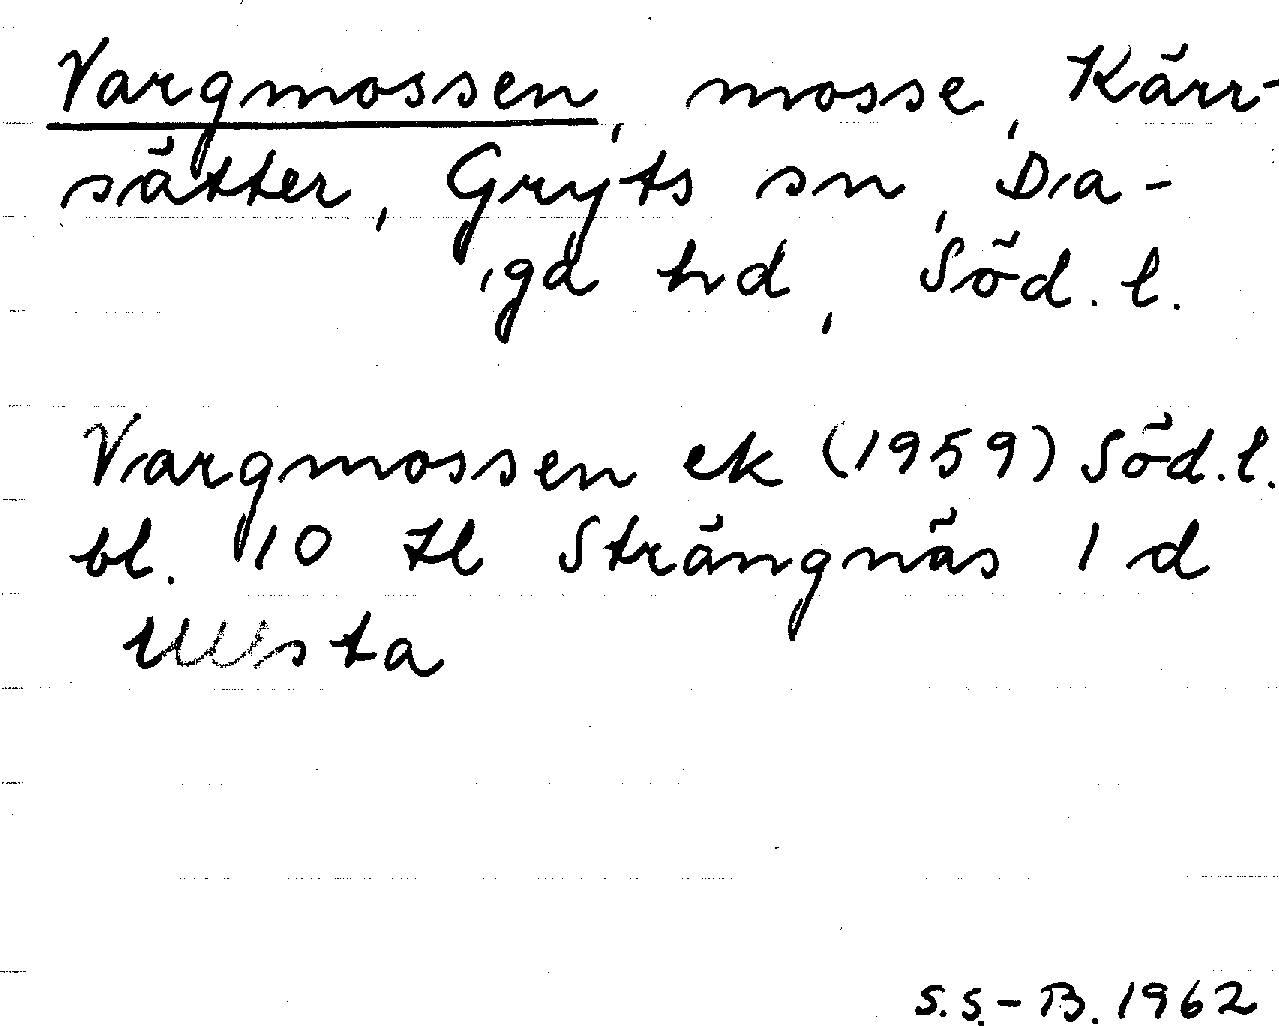 Vargmossen, mosse, Kärr-
sätter, Gryts sn, Da-
ga hd, Söd. l.
Vargmossen ek (1959) Söd. l.
bl. 10 tl Strängnäs 1 d
S.S.-B. 1962